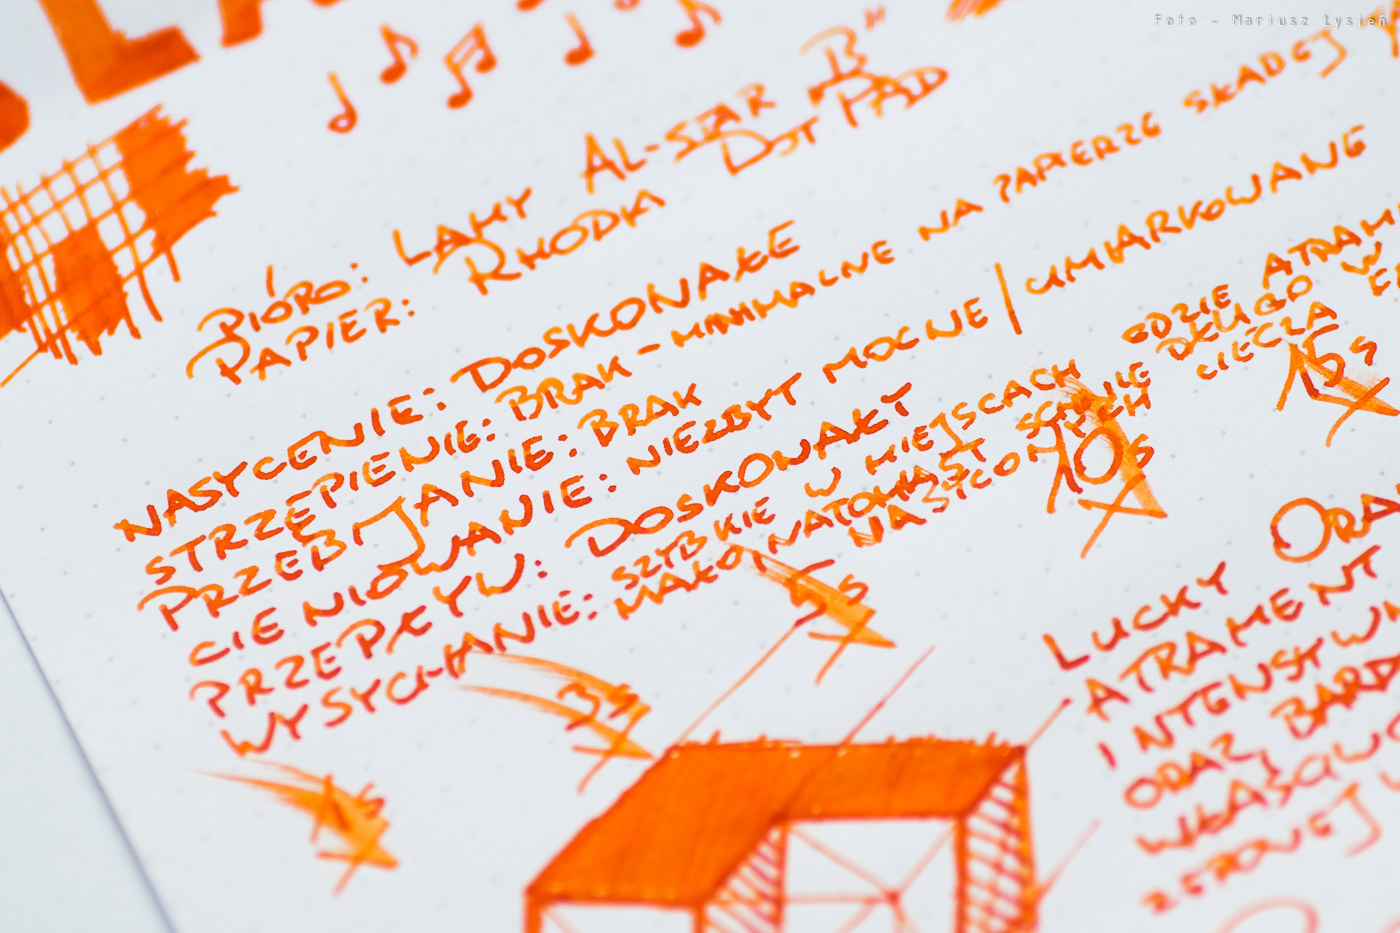 Foto - Mariusz Łysień
LA
PIÓRO: LAMY AL-STAR „B"
PAPIER: RHODIA DOT PAD
NASYCENIE: DOSKONAŁE
STRZĘPIENIE: BRAK - MINIMALNE NA PAPIERZE
PRZEBIJANIE: BRAK
CIENIOWANIE: NIEZBYT MOCNE / UMIARKOWANE
PRZEPŁYW: DOSKONAŁY
WYSYCHANIE: SZYBKIE W MIEJSCACH GDZIE
MAŁO, NATOMIAST SCHNIE DŁUGO W
NASYCONYCH CIECZĄ
1s
3s
5s
10s
15s
LUCKY
ATRAMENT
I
ORAZ,